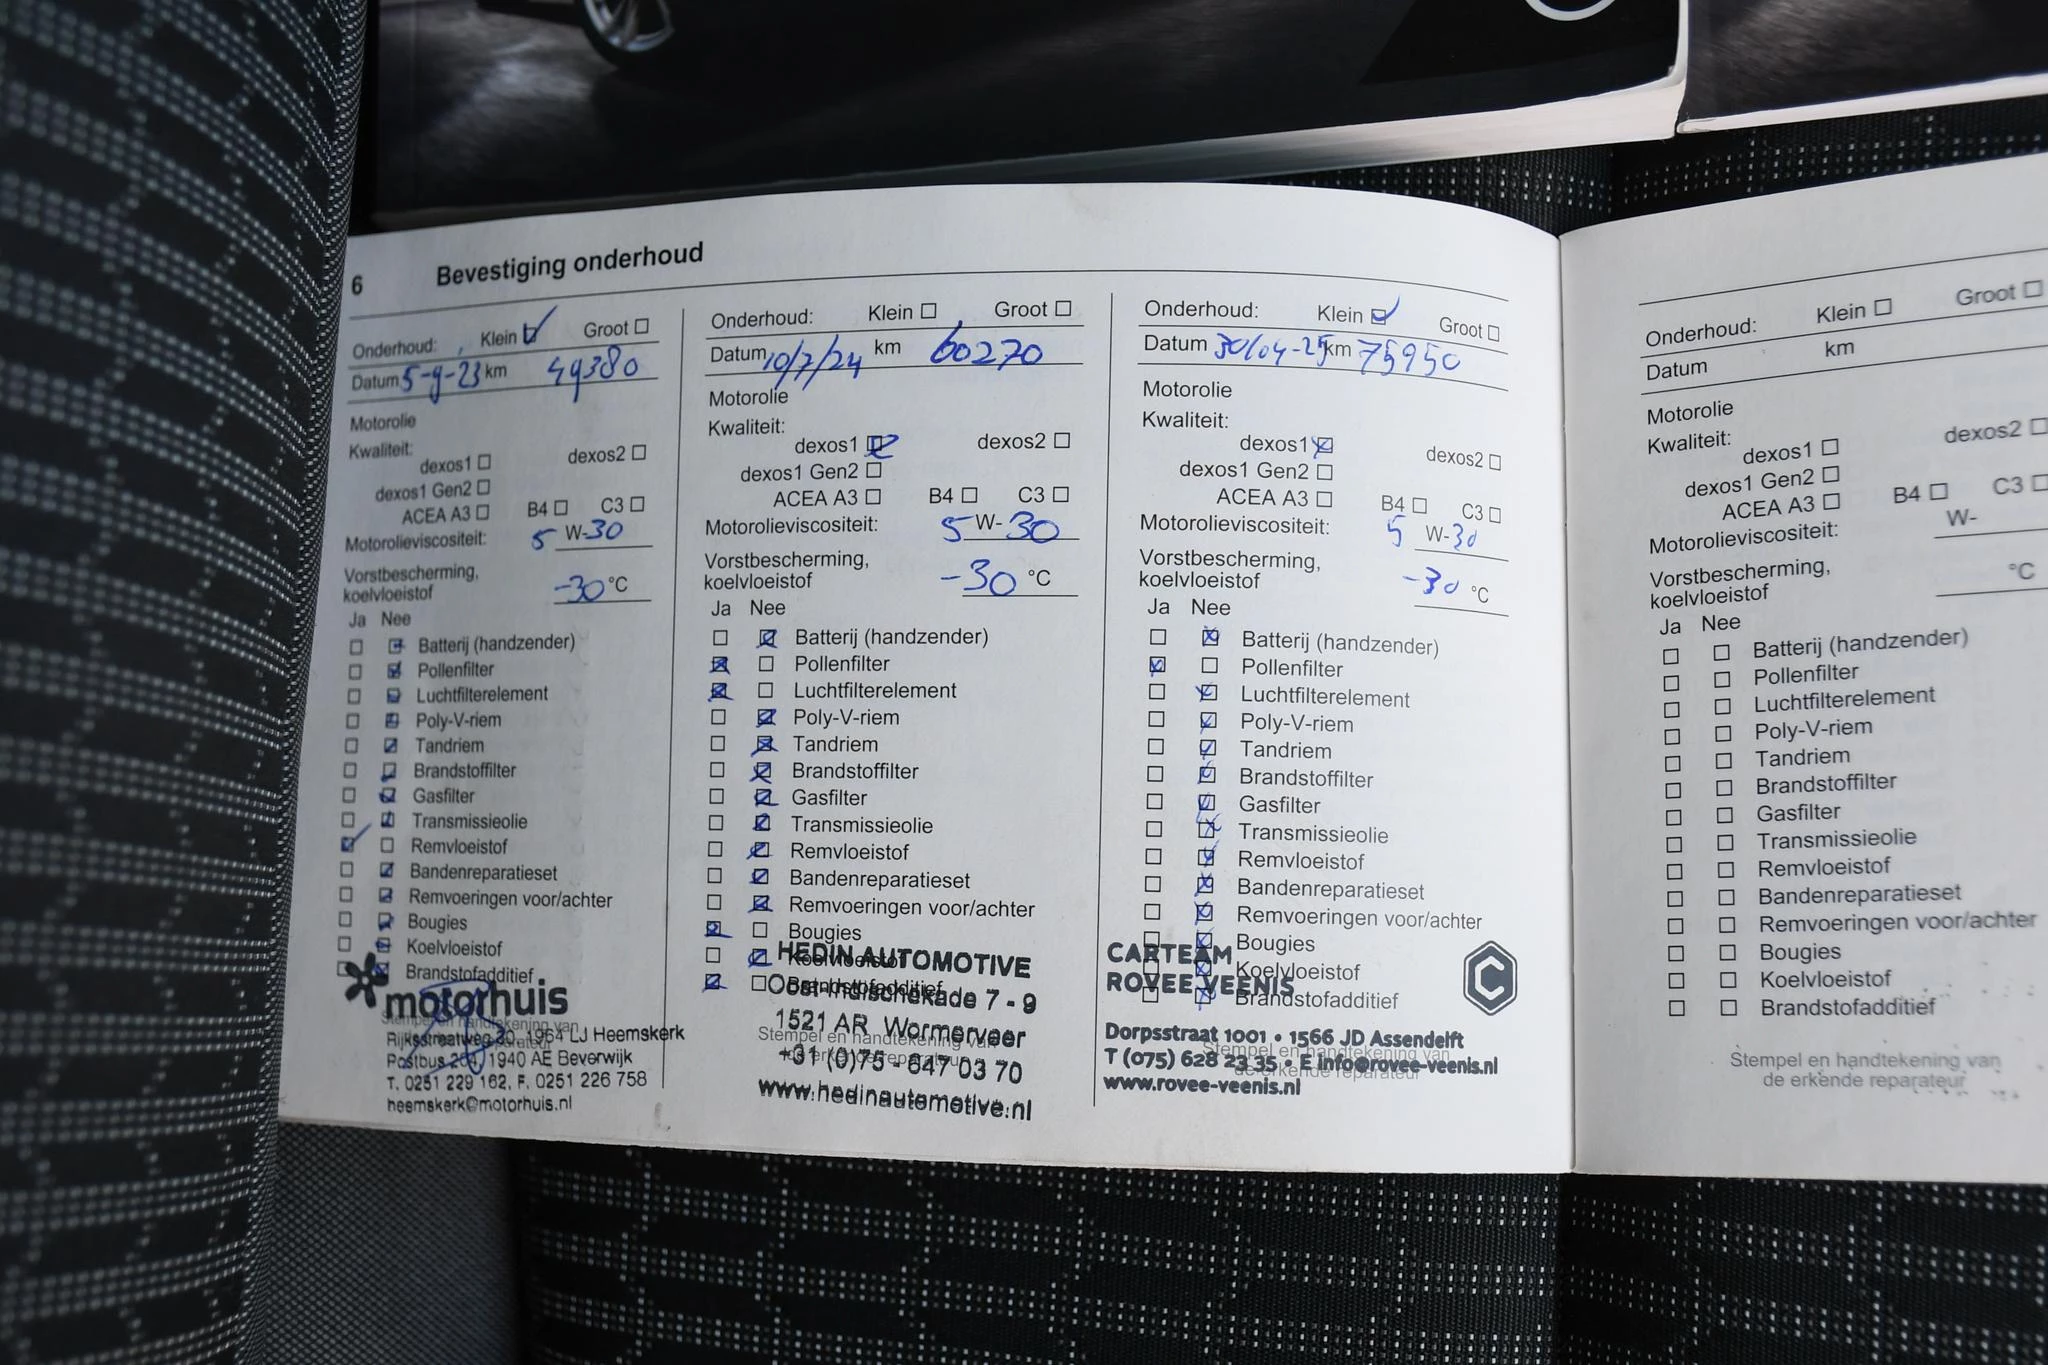 6 Bevestiging onderhoud
Onderhoud: Klein ☑ Groot ☐
Datum 5-9-23 km 49380
Motorolie
Kwaliteit:
dexos1 ☐ dexos2 ☐
dexos1 Gen2 ☐
ACEA A3 ☐ B4 ☐ C3 ☐
Motorolieviscositeit: 5 W-30
Vorstbescherming,
koelvloeistof -30 °C
Ja Nee
☐ ☑ Batterij (handzender)
☐ ☑ Pollenfilter
☐ ☑ Luchtfilterelement
☐ ☑ Poly-V-riem
☐ ☑ Tandriem
☐ ☑ Brandstoffilter
☐ ☑ Gasfilter
☐ ☑ Transmissieolie
☑ ☐ Remvloeistof
☐ ☑ Bandenreparatieset
☐ ☑ Remvoeringen voor/achter
☐ ☑ Bougies
☐ ☑ Koelvloeistof
☐ ☑ Brandstofadditief
motorhuis
Rijksstraatweg 30, 1964 LJ Heemskerk
Postbus 204, 1940 AE Beverwijk
T. 0251 229 162, F. 0251 226 758
heemskerk@motorhuis.nl
Onderhoud: Klein ☐ Groot ☐
Datum 10/7/24 km 60270
Motorolie
Kwaliteit:
dexos1 ☑ dexos2 ☐
dexos1 Gen2 ☐
ACEA A3 ☐ B4 ☐ C3 ☐
Motorolieviscositeit: 5 W-30
Vorstbescherming,
koelvloeistof -30 °C
Ja Nee
☐ ☑ Batterij (handzender)
☑ ☐ Pollenfilter
☑ ☐ Luchtfilterelement
☐ ☑ Poly-V-riem
☐ ☑ Tandriem
☐ ☑ Brandstoffilter
☐ ☑ Gasfilter
☐ ☑ Transmissieolie
☐ ☑ Remvloeistof
☐ ☑ Bandenreparatieset
☐ ☑ Remvoeringen voor/achter
☑ ☐ Bougies
☐ ☑ Koelvloeistof
☑ ☐ Brandstofadditief
HEDIN AUTOMOTIVE
Oost-Indischekade 7 - 9
1521 AR Wormerveer
+31 (0)75 - 647 03 70
www.hedinautomotive.nl
Stempel en handtekening van
de erkende reparateur
Onderhoud: Klein ☑ Groot ☐
Datum 30/04-25 km 75950
Motorolie
Kwaliteit:
dexos1 ☑ dexos2 ☐
dexos1 Gen2 ☐
ACEA A3 ☐ B4 ☐ C3 ☐
Motorolieviscositeit: 5 W-30
Vorstbescherming,
koelvloeistof -30 °C
Ja Nee
☐ ☑ Batterij (handzender)
☑ ☐ Pollenfilter
☐ ☑ Luchtfilterelement
☐ ☑ Poly-V-riem
☐ ☑ Tandriem
☐ ☑ Brandstoffilter
☐ ☑ Gasfilter
☐ ☑ Transmissieolie
☐ ☑ Remvloeistof
☐ ☑ Bandenreparatieset
☐ ☑ Remvoeringen voor/achter
☐ ☑ Bougies
☐ ☑ Koelvloeistof
☐ ☑ Brandstofadditief
CARTEAM
ROVEE VEENIS
C
Dorpsstraat 1001 • 1566 JD Assendelft
T (075) 628 23 35 E info@rovee-veenis.nl
www.rovee-veenis.nl
Stempel en handtekening van
de erkende reparateur
Onderhoud: Klein ☐ Groot ☐
Datum km
Motorolie
Kwaliteit:
dexos1 ☐ dexos2 ☐
dexos1 Gen2 ☐
ACEA A3 ☐ B4 ☐ C3 ☐
Motorolieviscositeit: W-
Vorstbescherming,
koelvloeistof °C
Ja Nee
☐ ☐ Batterij (handzender)
☐ ☐ Pollenfilter
☐ ☐ Luchtfilterelement
☐ ☐ Poly-V-riem
☐ ☐ Tandriem
☐ ☐ Brandstoffilter
☐ ☐ Gasfilter
☐ ☐ Transmissieolie
☐ ☐ Remvloeistof
☐ ☐ Bandenreparatieset
☐ ☐ Remvoeringen voor/achter
☐ ☐ Bougies
☐ ☐ Koelvloeistof
☐ ☐ Brandstofadditief
Stempel en handtekening van
de erkende reparateur